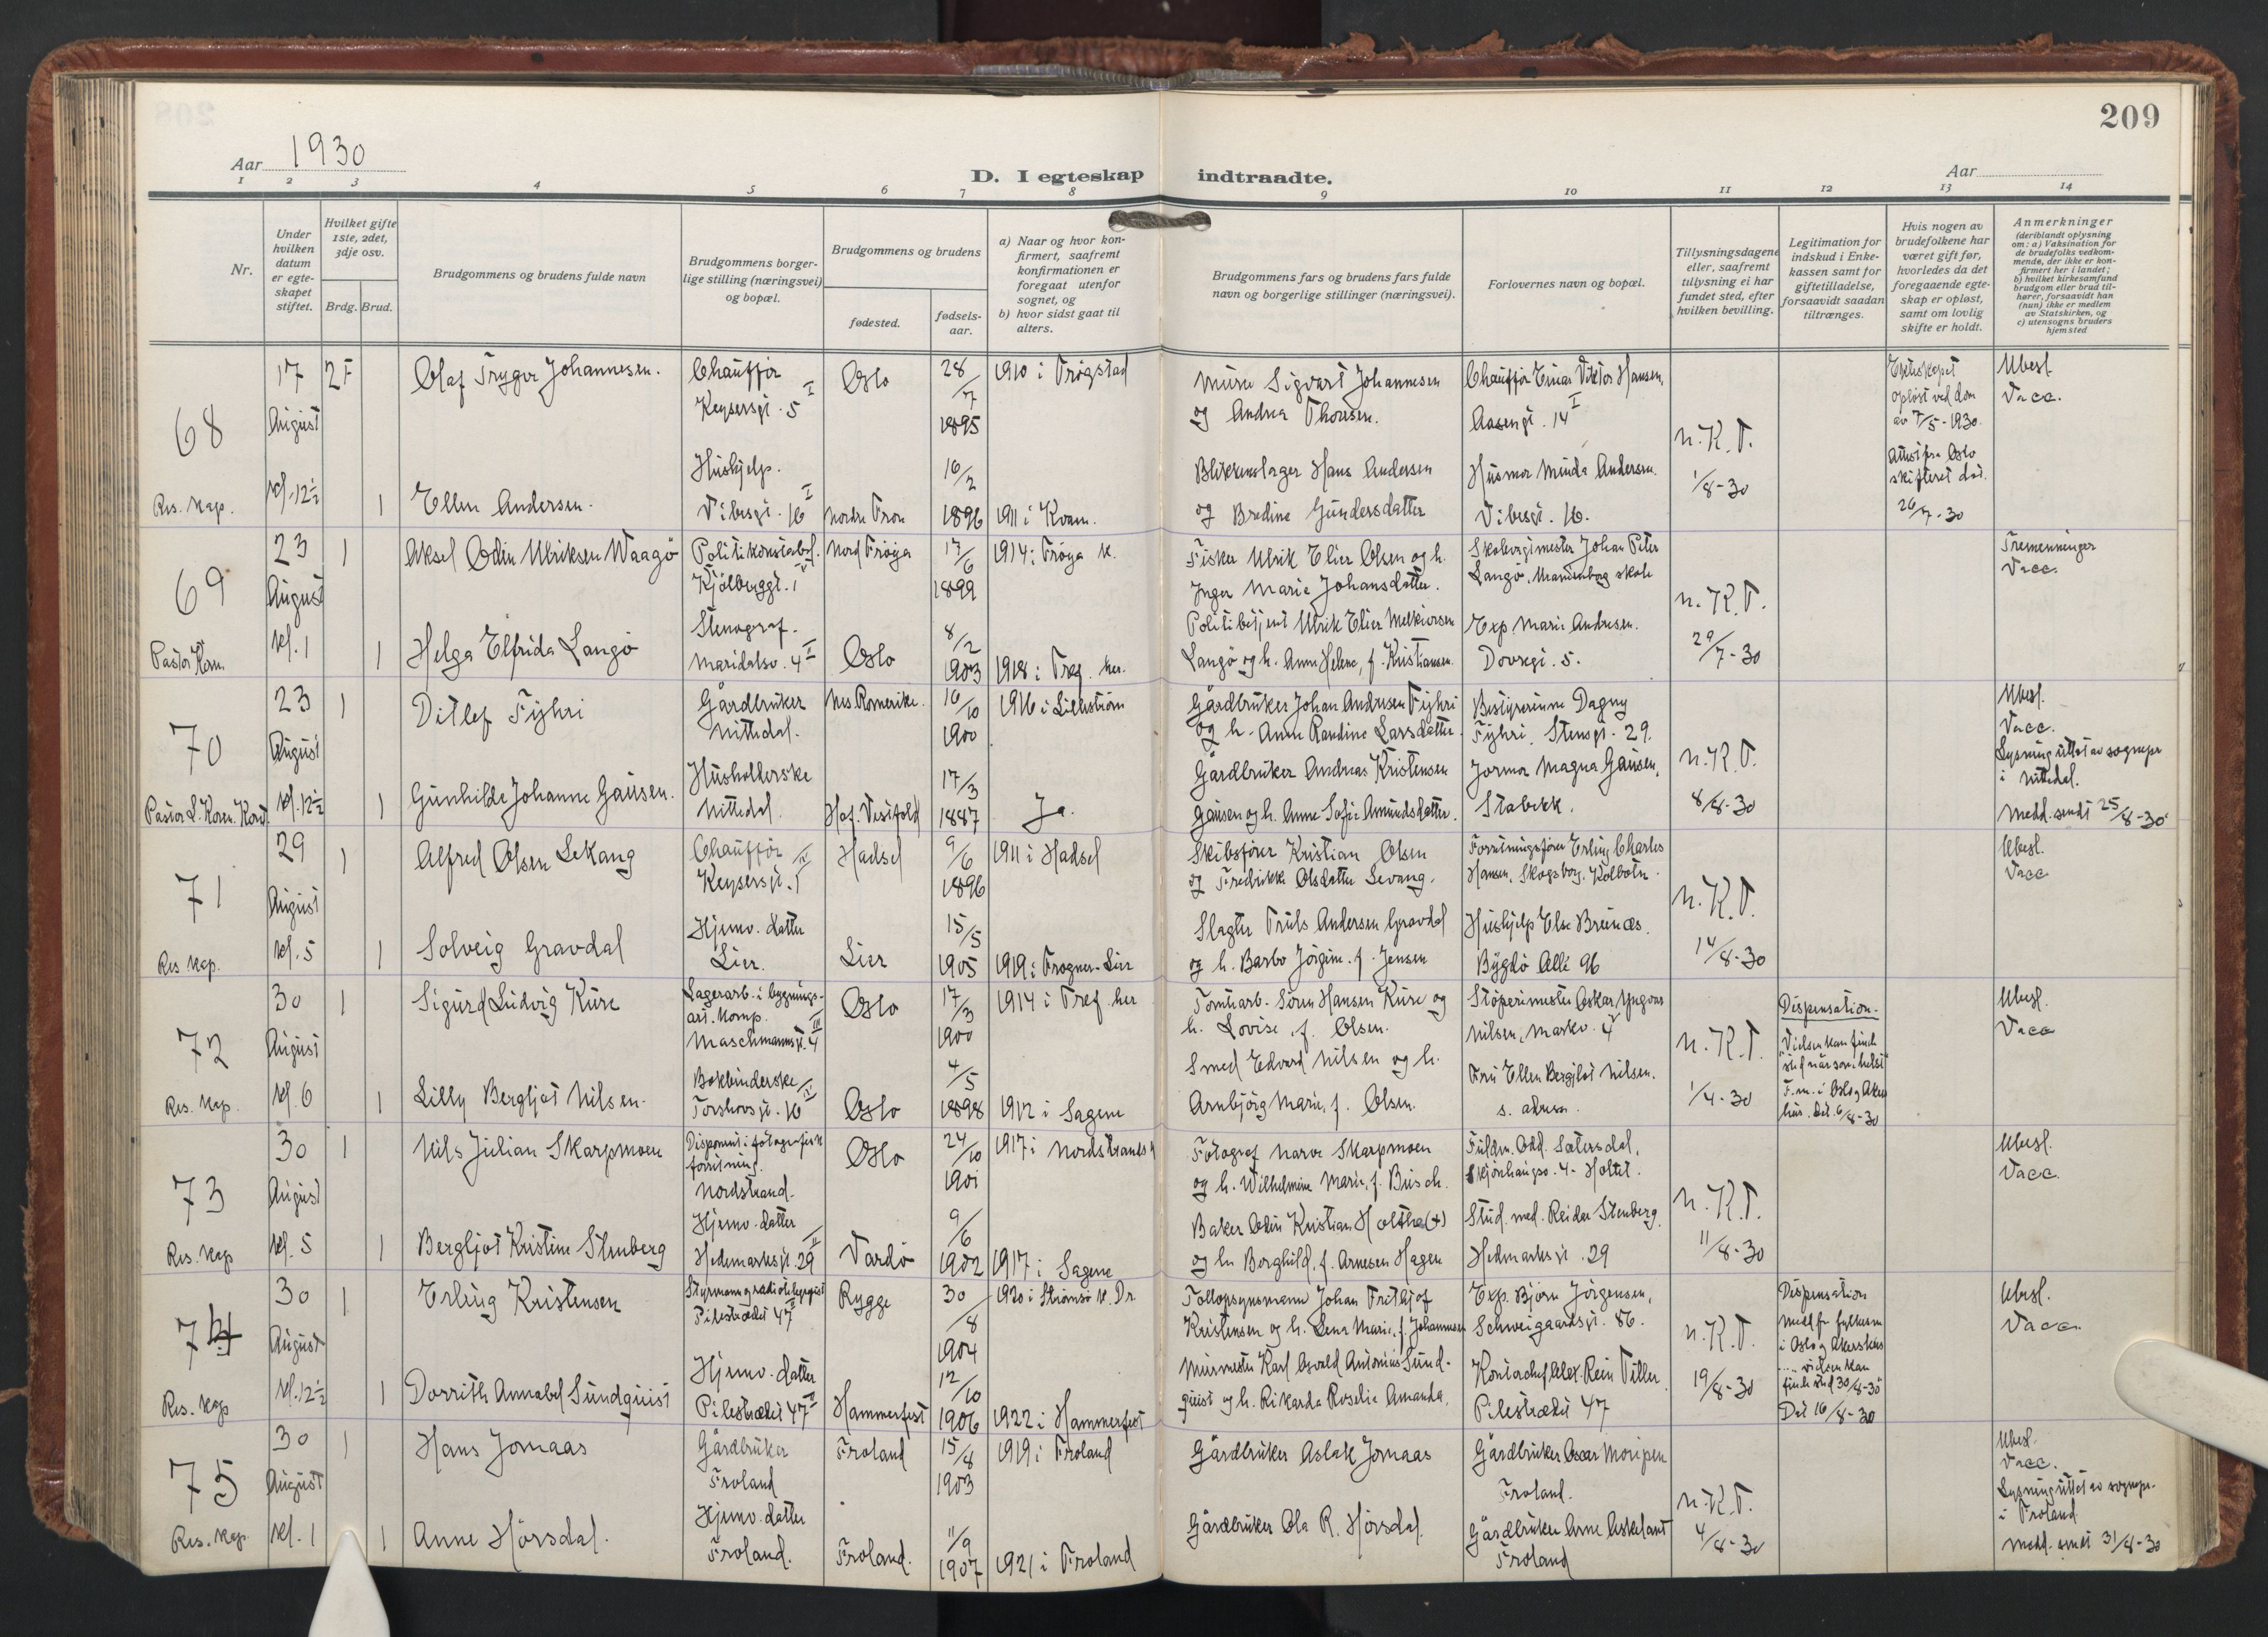 209
Aar 1930
D. I egteskap indtraadte.
Aar
1 2 3 4 5 6 7 8 9 10 11 12 13 14
Nr.
Under hvilken datum er egte-skapet stiftet.
Hvilket gifte 1ste, 2det, 3dje osv.
Brdg. Brud.
Brudgommens og brudens fulde navn
Brudgommens borger-lige stilling (næringsvei) og bopæl.
Brudgommens og brudens
fødested.
fødsels-aar.
a) Naar og hvor kon-firmert, saafremt konfirmationen er foregaat utenfor sognet, og
b) hvor sidst gaat til alters.
Brudgommens fars og brudens fars fulde navn og borgerlige stillinger (næringsvei).
Forlovernes navn og bopæl.
Tillysningsdagene eller, saafremt tillysning ei har fundet sted, efter hvilken bevilling.
Legitimation for indskud i Enke-kassen samt for giftetilladelse, forsaavidt saadan tiltrænges.
Hvis nogen av brudefolkene har været gift før, hvorledes da det foregaaende egte-skap er opløst, samt om lovlig skifte er holdt.
Anmerkninger (deriblandt oplysning om: a) Vaksination for de brudefolks vedkom-mende, der ikke er kon-firmert her i landet; b) hvilket kirkesamfund brudgom eller brud til-hører, forsaavidt han (hun) ikke er medlem av Statskirken, og c) utensogns bruders hjemsted
68
Res. kap.
17 August kl. 12½
2F
Olaf Trygve Johannesen.
Chauffør
Keysersgt. 5 I
Oslo
28/7 1895
1910 i Trøgstad
Murer Sigvart Johannesen
og Andrea Thoresen.
Chauffør Einar Viktor Hansen,
Aasengt. 14 I
n.K.T.
1/8-30
Ekteskapet
opløst ved dom
av 7/5-1930.
Attest fra Oslo
skifteret dat.
26/7-30
Ubesl.
Vacc.
1
Ellen Andersen.
Hushjelp.
Vibesgt. 16 I
Nordre Fron
16/2 1896
1911 i Kvam.
Blikkenslager Hans Andersen
og Bredine Gundersdatter
Husmor Minda Andersen.
Vibesgt. 16.
69
Pastor Korn.
23 August kl. 1
1
Aksel Odin Ulriksen Waagø
Politikonstabel.
Kjølberggt. 1
Nord Frøya
17/6 1899
1914 i Frøya k.
Fisker Ulrik Elier Olsen og h.
Inger Marie Johansdatter.
Johan Peter
Langø,
n.K.T.
29/7-30
Tremenninger
Vacc.
1
Helga Elfrida Langø
Stenograf.
Maridalsv. 4 II
Oslo
8/2 1903
1918 i Tref. her.
Politibetjent Ulrik Elier Melkiorsen
Langø og h. Anne Helene, f. Kristiansen.
Exp. Marie Andresen.
Dovregt. 5.
70
Pastor L. Koren.
23 August kl. 12½
1
Ditlef Fyhri
Gårdbruker
Nittedal.
Nes. Romerike.
16/10 1900
1916 i Lillestrøm
Gårdbruker Johan Andresen Fyhri
og h. Anne Randine Larsdatter.
Bestyrerinne Dagny
Fyhri, Stensgt. 29.
n.K.T.
8/8-30
Ubesl.
Vacc.
Lysning uttat av sognepr.
i Nittedal.
Medd. sendt 25/8-30
1
Gunhilde Johanne Gausen.
Husholderske
Nittedal.
Hof. Vestfold
17/3 1887
Ja.
Gårdbruker Andreas Kristensen
Gausen og h. Anne Sofie Amundsdatter.
Jormor Magna Gausen,
Stabekk.
71
Res. kap.
29 August kl. 5
1
Alfred Olsen Lekang
Chauffør
Keysersgt. 1
Hadsel
9/6 1896
1911 i Hadsel
Skibsfører Kristian Olsen
og Fredrikke Olsdatter Levang.
Forretningsfører Erling Charles
Hansen, Skogsborg, Kolbotn.
n.K.T.
14/8-30
Ubesl.
Vacc
1
Solveig Gravdal
Hjemv. datter
Lier.
Lier
15/5 1905
1919 i Frogner-Lier
Slagter Truls Andersen Gravdal
og h. Barbo Jørgine. f. Jensen
Hushjelp Else Breunæs.
Bygdø Allé 96
72
Res. kap.
30 August kl. 6
1
Sigurd Ludvig Kure
Lagerarb. i bygnings-
art. komp.
Maschmannsgt. 4 III
Oslo
17/3 1900
1914 i Tref. her
Tomtearb. Søren Hansen Kure og
h. Lovise, f. Olsen.
Støperimester Oskar Yngvar
Nilsen, Markv. 4
n.K.T.
1/4-30
Dispensation.
Vielsen kan finde
sted når som helst
F.m. i Oslo og Akers
hus. Dat. 6/8-30
Ubesl.
Vacc
1
Lilly Bergljot Nilsen.
Bokbinderske
Torshovsgt. 16
Oslo
4/5 1898
1912 i Sagene
Smed Edvard Nilsen og h.
Arnbjørg Marie, f. Olsen.
Fru Ellen Bergljot Nilsen.
s. adresse.
73
Res. kap
30 August kl. 5
1
Nils Julian Skarpmoen
Disponent i fotografisk
forretning.
Nordstrand.
Oslo
24/10 1901
1917 i Nordstrands k
Fotograf Narve Skarpmoen
og h. Wilhelmine Marie, f. Busch.
Odd. Sætersdal,
4. Holtet.
n.K.T.
11/8-30
Ubesl.
Vacc.
1
Bergljot Kristine Stenberg
Hjemv. datter
Hedemarksgt. 29 II
Vardø
9/6 1902
1917 i Sagene
Baker Odin Kristian Holthe (+)
og h Borghild, f. Arnesen Hagen
Stud. med. Reidar Stenberg.
Hedmarksgt. 29
74
Res. kap
30 August kl. 12½
1
Erling Kristensen
Styrmann og radiotelegrafist
Pilestrædet 47 II
Rygge
30/8 1904
1920 i Strømsø k. Dr.
Tollopsynsmann Johan Frithjof
Kristensen og h. Lena Marie, f. Johannesen
Exp. Bjørn Jørgensen,
Schweigaardsgt. 86.
n.K.T.
19/8-30
Dispensation
Medd. fr fylkesm
i Oslo og Akershus
vielsen kan
finde sted 30/8-30
Dat 16/8-30
Ubesl.
Vacc.
1
Dorrith Annabel Sundquist
Hjemv. datter
Pilestrædet 47 II
Hammerfest
12/10 1906
1922 i Hammerfest
Murmester Karl Osvald Antonius Sund-
quist og h. Rikarda Roselie Amanda.
Kontorchef Alex. Rein Tiller
Pilestrædet 47
75
Res. kap.
30 August kl. 1
1
Hans Jomaas
Gårdbruker
Froland
Froland
15/8 1903
1919 i Froland
Gårdbruker Aslak Jomaas
Gårdbruker Oscar Moripen
Froland.
n.K.T.
4/8-30
Ubesl.
Vacc.
Lysning uttat av sognepr.
i Froland
Medd. sendt 31/8-30
1
Anne Hørsdal.
Hjemv. datter
Froland.
Froland.
11/9 1907
1921 i Froland
Gårdbruker Ola R. Hørsdal.
Gårdbruker Arne Askeland
Froland